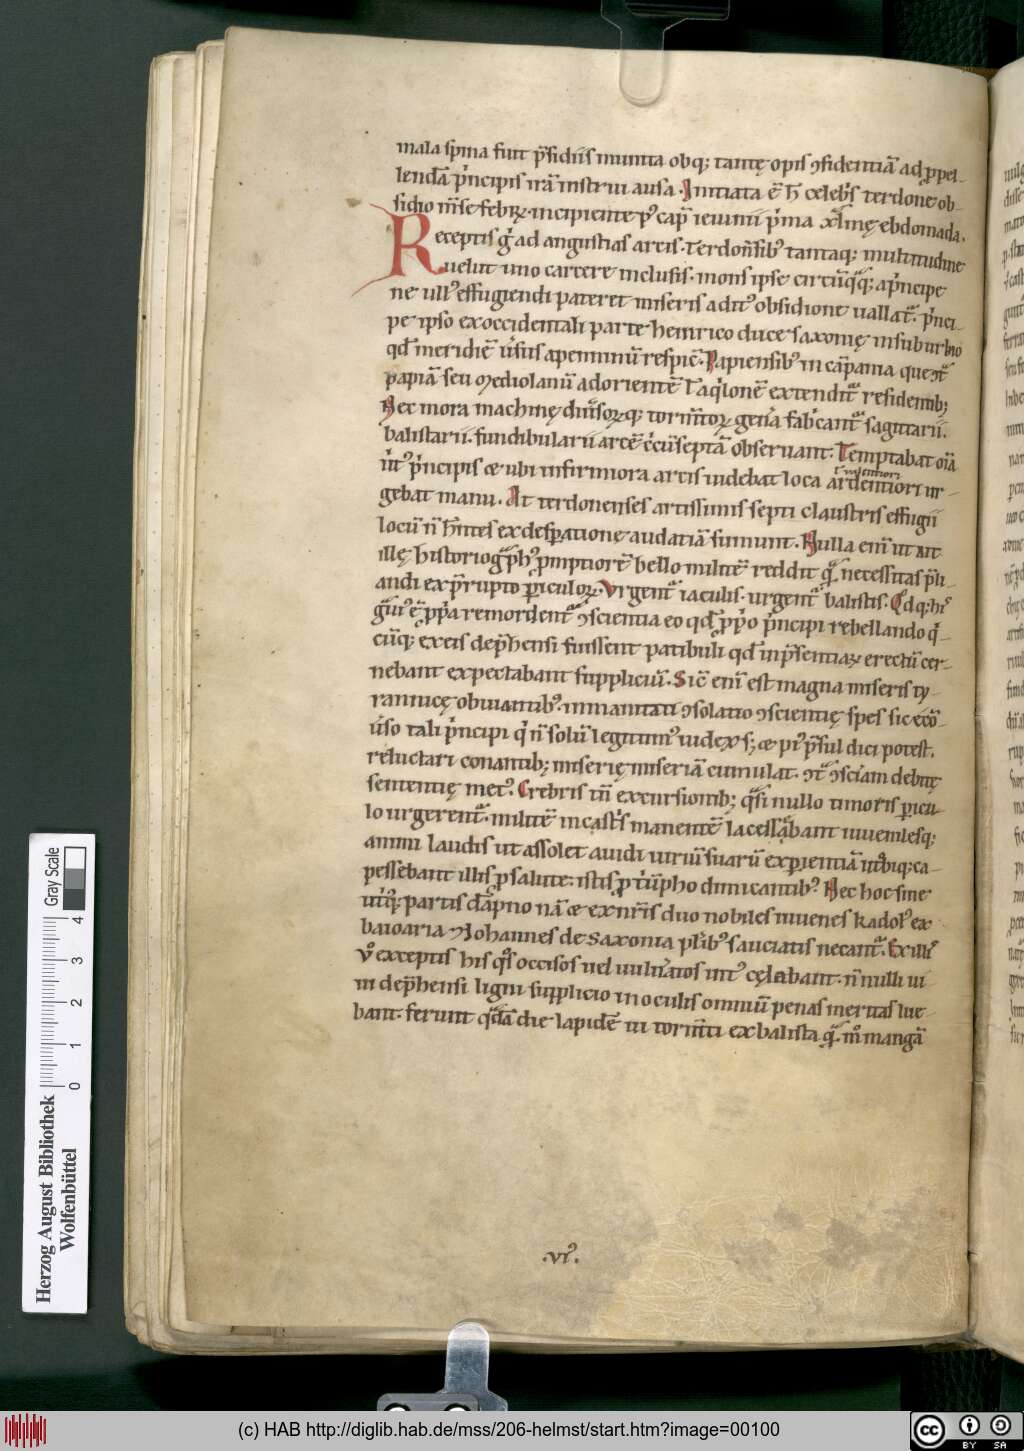 mala spina fuit p̄sidiis munita obq; tantę opis ꝯfidentiā ad ꝓpel-
lendā pͥncipis irā instrui ausa. Initiata ē h̄ celebͥs terdonę ob-
sidio m̄se febrꝝ. incipiente pꝰ cap̄ ieiunii pͥma xͥlmę ebdomada.
Receptis gͥ ad angustias artis. terdoñsibꝰ tantaq; multitudine
uelut uno carcere inclusis. mons ipse circūqͣq; apͥncipe
ne ullꝰ effugiendi pateret miseris aditꝰ obsidione uallatᷣ. pͥnci-
pe ipso ex occidentali parte heinrico duce saxonię in suburbio
qd̄ meridiē ūsus apenninū respic̄. Papiensibꝰ in cāpania que ꝯtͣ
papiā seu mediolanū ad orientē ꞇ aqͥlonē extenditᷣ residentib;
Nec mora machinę diūsoꝝq; torm̄toꝝ genͣa fabͥcantᷣ sagittarii.
balistarii. fundibularii arcē cͥcūseptā obseruant. Temptabat oīa
ūtꝰ pͥncipis ce ubi infirmiora artis uidebat loca ardentiori ur-
ꞇ intentiori
gebat manu. At terdonenses artissimis septi claustris effugii
locū n̄ h̄ntes ex desꝑatione audatiā sumunt. Nulla eniͫ ut ait
illę historiogͣphꝰ ꝓmptiorē bello militē reddit qͣ necessitas p̄li-
andi ex p̄rupto ꝑiculoꝝ. Vrgentᷣ iaculis. urgentᷣ balistis. Qd q; hiͥs
gͣuiꝰ ē ꝓpͥa remordentᷣ ꝯscientia eo qd ꝓpͥo pͥncipi rebellando qͥ-
cūq; ex eis dep̄hensi fuissent patibuli qd in p̄sentiaꝝ erectū cer-
nebant expectabant suppliciū. Sic eniͫ est magna miseris ty-
rannicę obuiantibꝰ. inmanitati ꝯsolatio ꝯscientię spes sic ecō-
ūso tali pͥncipi qͥ n̄ solū legitimꝰ iudex s; ce piꝰ p̄sul dici potest.
reluctari conantib; miserię miseriā cumulat. ꝯtͣ ꝯsciam debitę
sententię metꝰ. Crebris tn̄ excursionib; qͣsi nullo timoris ꝑicu-
lo urgerentᷣ. militē in castͥs manentē lacessͣbant iuuenilesq;
animi laudis ut assolet auidi uirū suarū exꝑientiā utͥbiq; ca-
pessebant illis ꝓ salute. istis ꝓ tͥūpho dimicantibꝰ. Nec hoc sine
utͥq; partis dāpno nā ce ex nr̄is duo nobiles iuuenes kadolꝰ ex
baioaria ꝯ Johannes de saxonia plͥibꝰ sauciatis necantᷣ. Ex illiꝰ
ṽo exceptis his qͦs occisos uel uulnͣatos intꝰ cęlabant. n̄ nulli ui-
ui dep̄hensi ligni supplicio in oculis omniū penas meritas lue-
bant. ferunt qͣdā die lapidē ui torm̄ti ex balista. qͣ. m̊ mangā
.vıꝰ.
Herzog August Bibliothek
Wolfenbüttel
Gray Scale
0 1 2 3 4
(c) HAB http://diglib.hab.de/mss/206-helmst/start.htm?image=00100
cc BY SA